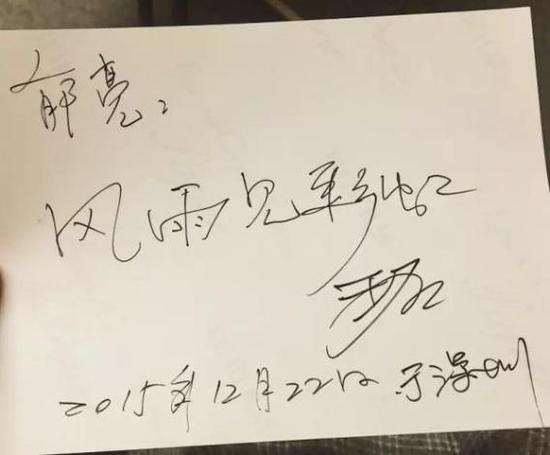 郁亮：
风雨见彩虹
2015年12月22日 于深圳